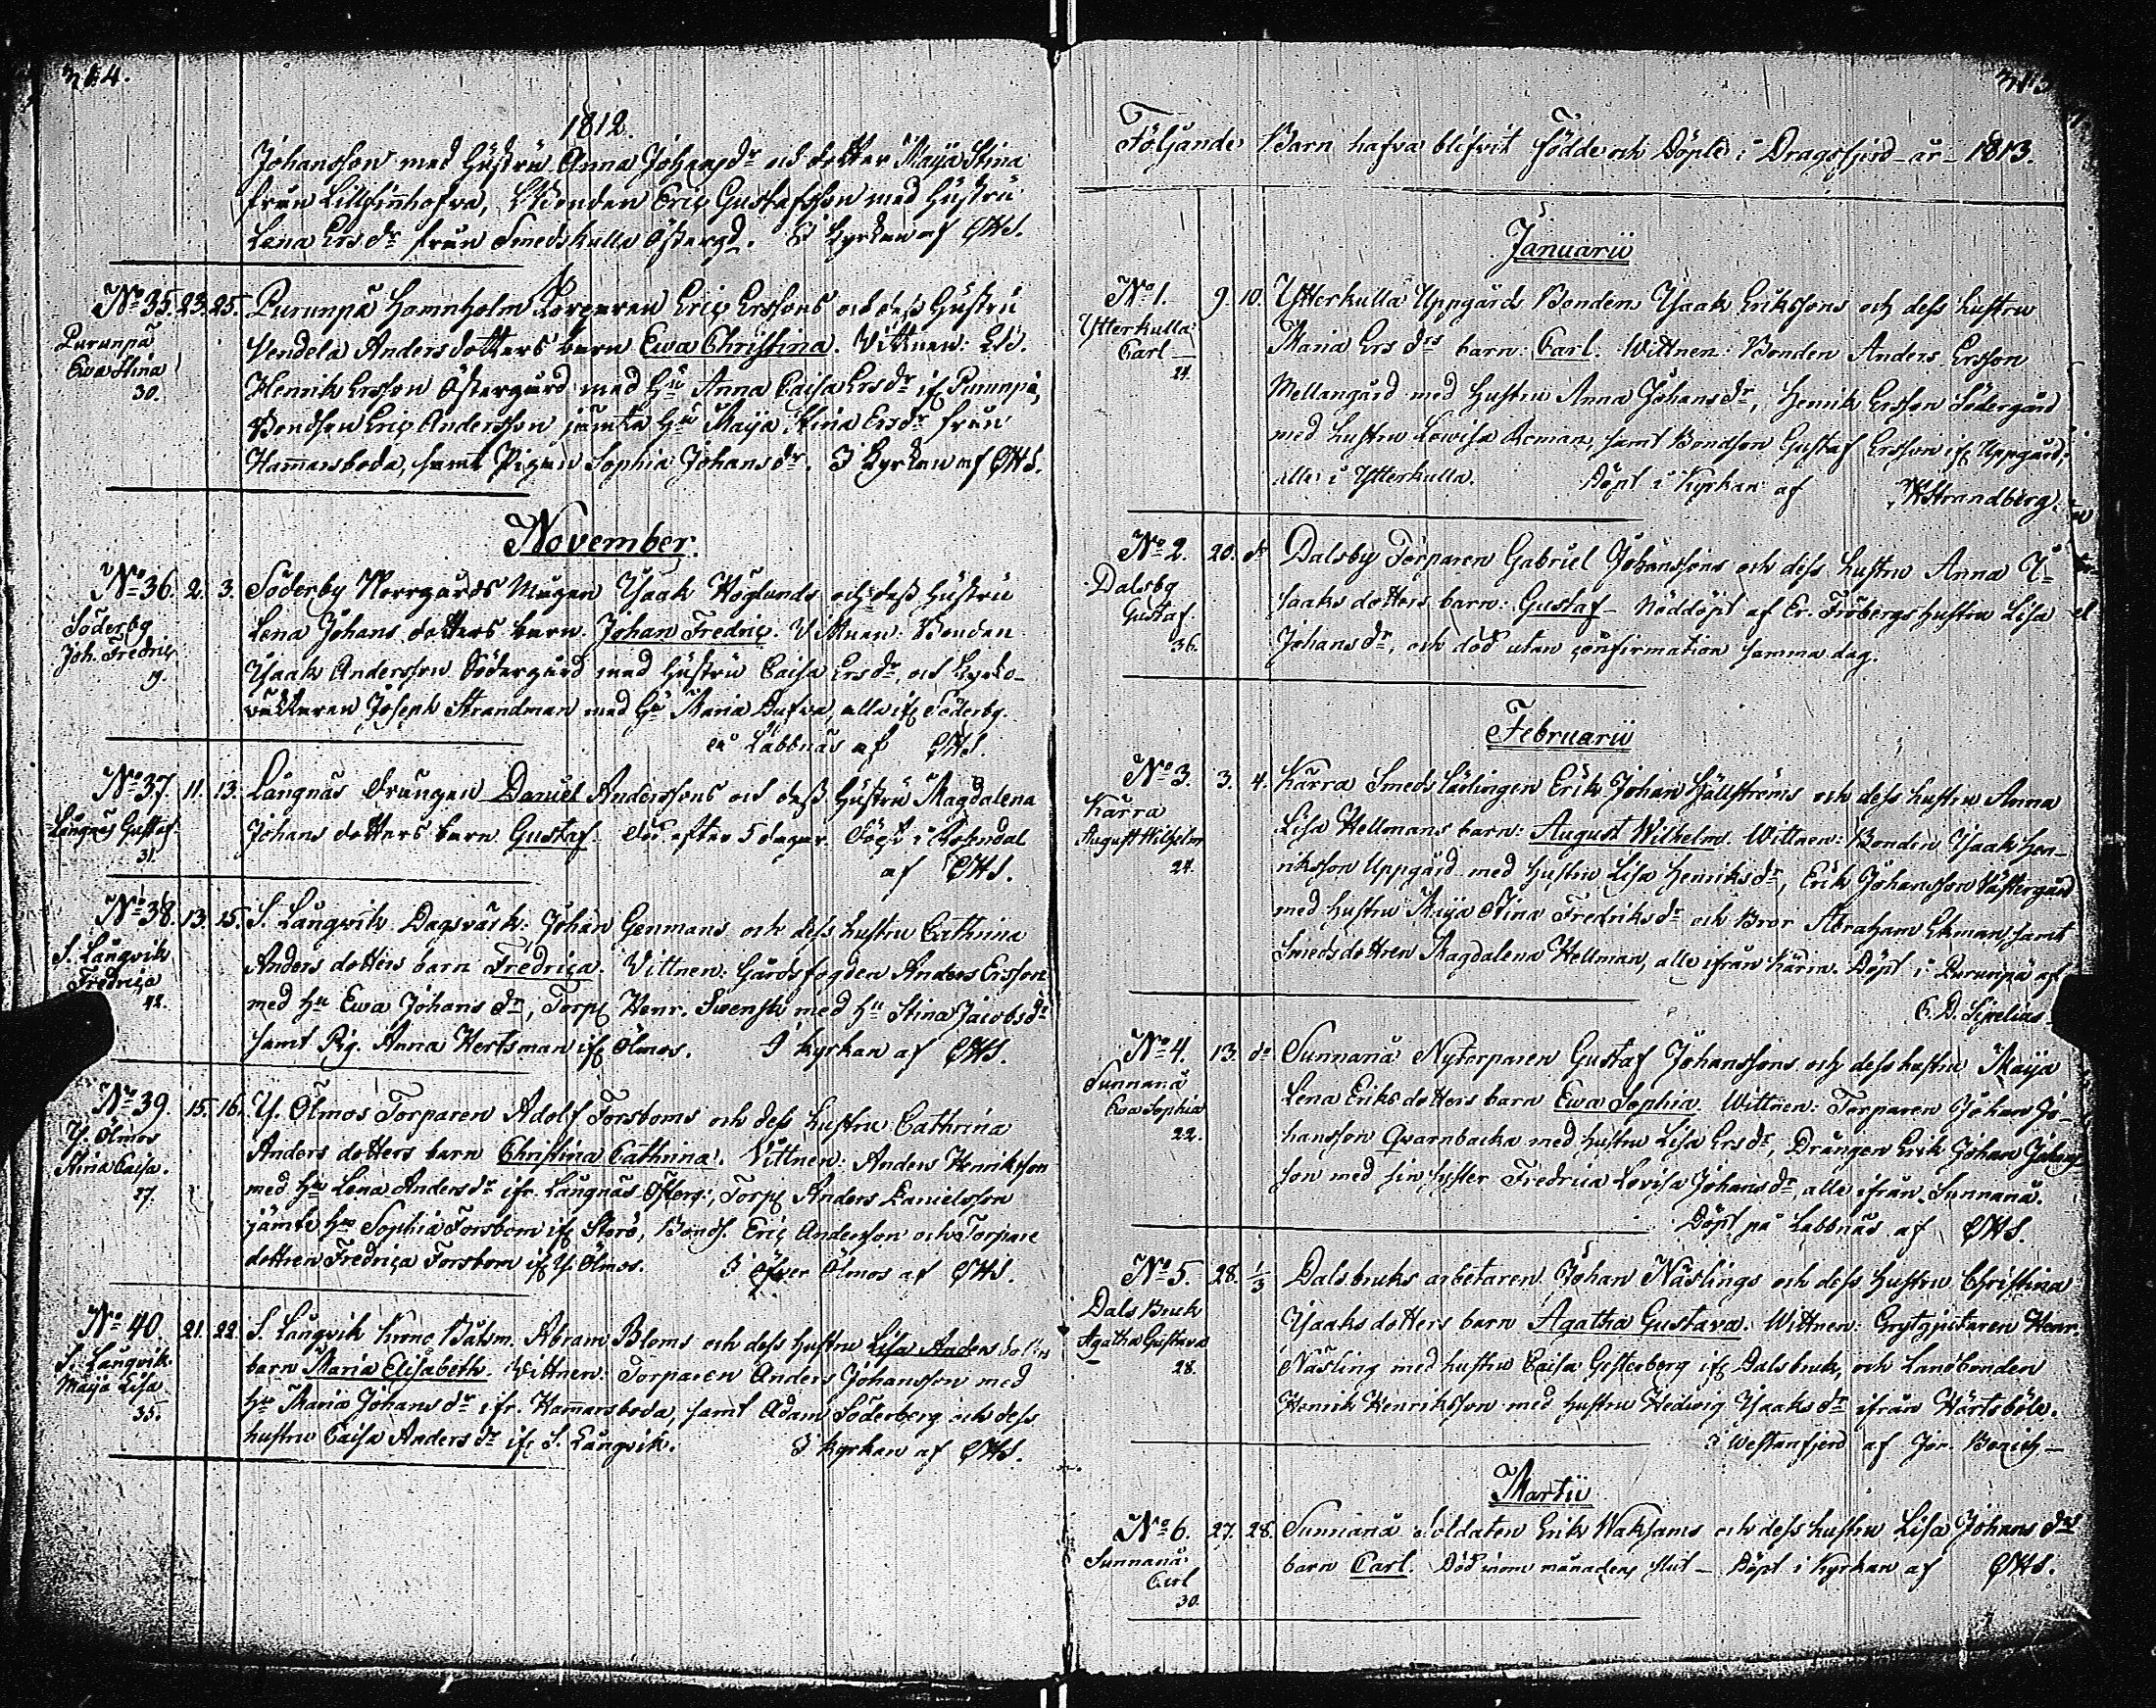 1812.
Johansson med Hustru Anna Johansdr och dotter Maija Stina
från Lillfinhofva, Bonden Eriç Gustafsson med Hustru
Lena Ersdr från Smedskulla Östergd. I Kyrkan af
No 35. 23. 25. Purunpä Hamnholm Torparen Eriç Erssons och dess Hustru
Purunpä
Ewa Stina
30.
Vendela Andersdotters barn Ewa Christina. Vittnen:
Henrik Ersson Östergård med Hu Anna Caisa Ersdr if. Purunpä,
Bondson Eriç Andersson jämte Hu Maija Stina Ersdr från
Hamarsboda, samt Pigan Sophia Johansdr. I Kyrkan af
November.
No 36. 2. 3. Söderby Norrgårds Mågen Ysaak Höglunds och dess Hustru
Söderby
Joh. Fredriç
19.
Lena Johans dotters barn Johan Fredriç. Vittnen: Bonden
Ysaak Andersson Södergård med Hustru Caisa Ersdr, och Kyrko-
väktaren Joseph Strandman med Hu Maria Dufva, alla if. Söderby.
på Labbnäs af
No 37. 11. 13. Långnäs Drängen Daniel Anderssons och dess Hustru Magdalena
Långnäs Gustaf
31.
Johans dotters barn Gustaf. Död efter 5 dagar. Döpt i Rosendal
af
No 38. 13. 15. S. Långvik Dagsvärk. Johan Genmans och dess hustru Cathrina
S. Långvik
Fredriça
42.
Anders dotters barn Fredriça. Vittnen: Gårdsfogden Anders Ersson
med Hu Ewa Johans dr, Torp. Henr. Svensk med Hu Stina Jacobsdr
samt Pig. Anna Hertsman if. Ölmos. I kyrkan af
No 39. 15. 16. Y. Ölmos Torparen Adolf Forsboms och dess hustru Cathrina
Y. Ölmos
Stina Caisa.
27.
Anders dotters barn Christina Cathrina. Vittnen: Anders Henriksson
med Hu Lena Andersdr ifr. Långnäs Österg., Torp. Anders Danielsson
jämte Hu Sophia Forsbom if. Storö, Bonds. Eriç Andersson och Torpare
dottren Fredriça Forsbom if. Y. Ölmos. I Öfver Ölmos af
No 40. 21. 22. S. Långvik Krono Båtsm. Abram Bloms och dess hustru Lisa Anders dotters
S. Långvik
Maija Lisa
35.
barn Maria Elisabeth. Vittnen: Torparen Anders Johansson med
Hu Maria Johans dr ifr. Hamarsboda, samt Adam Söderberg och dess
hustru Caisa Anders dr if. S. Långvik. I kyrkan af
Följande Barn hafva blifvit födde och Döpte i Dragsfjerd år 1813.
Januarii
No 1. 9. 10. Ytterkulla Uppgårds Bonden Ysaak Erikssons och dess hustru
Ytterkulla
Carl
24.
Maria Ers drs barn: Carl. Wittnen: Bonden Anders Ersson
Mellangård med Hustru Anna Johansdr, Henrik Ersson Södergård
med hustru Lowisa Reman, samt Bondson Gustaf Ersson if. Uppgård,
alla i Ytterkulla. Döpt i Kyrkan af Strandberg.
No 2. 20. do Dalsby Torparen Gabriel Johanssons och dess hustru Anna Y-
Dalsby
Gustaf
36.
saaks dotters barn: Gustaf - Nöddöpt af Er. Frobergs hustru Lisa
Johans dr, och död utan confirmation samma dag.
Februarii
No 3. 3. 4. Kärra Smeds Lärlingen Erik Johan Hjällströms och dess hustru Anna
Kärra
August Wilhelm
24.
Lisa Hellmans barn: August Wilhelm. Wittnen: Bonden Ysaak Hen-
riksson Uppgård med hustru Lisa Henriksdr, Erik Johansson Västergård
med hustru Maija Stina Fredriksdr och Bror Abraham Ekman, samt
Smedsdottren Magdalena Hellman, alla ifrån Kärra. Döpt i Purunpä af
C. D. Sirelius
No 4. 13. do Sunnanå Nytorparen Gustaf Johanssons och dess hustru Maija
Sunnanå
Ewa Sophia
22.
Lena Eriks dotters barn Ewa Sophia. Wittnen: Torparen Johan Jo-
hansson Qvarnbacka med hustru Lisa Ersdr, Drängen Erik Johan Johans-
son med sin syster Fredrica Lovisa Johansdr, alla ifrån Sunnanå.
Döpt på Labbnäs af
No 5. 28. 1/3 Dalsbruks arbetaren Johan Näslings och dess Hustru Christina
Dals Bruk
Agatha Gustava
28.
Ysaaks dotters barn Agatha Gustava. Wittnen: Grytgjutaren Henr.
Näsling med hustru Caisa Gesterberg if. Dalsbruk, och Landbonden
Henrik Henriksson med hustru Hedwig Ysaaks dr ifrån Hertsböle.
i Westanfjerd af
Martii
No 6. 27. 28. Sunnanå Soldaten Erik Waksams och dess hustru Lisa Johans drs
Sunnanå
Carl
30.
barn Carl. Död inom månadens slut - Döpt i Kyrkan af